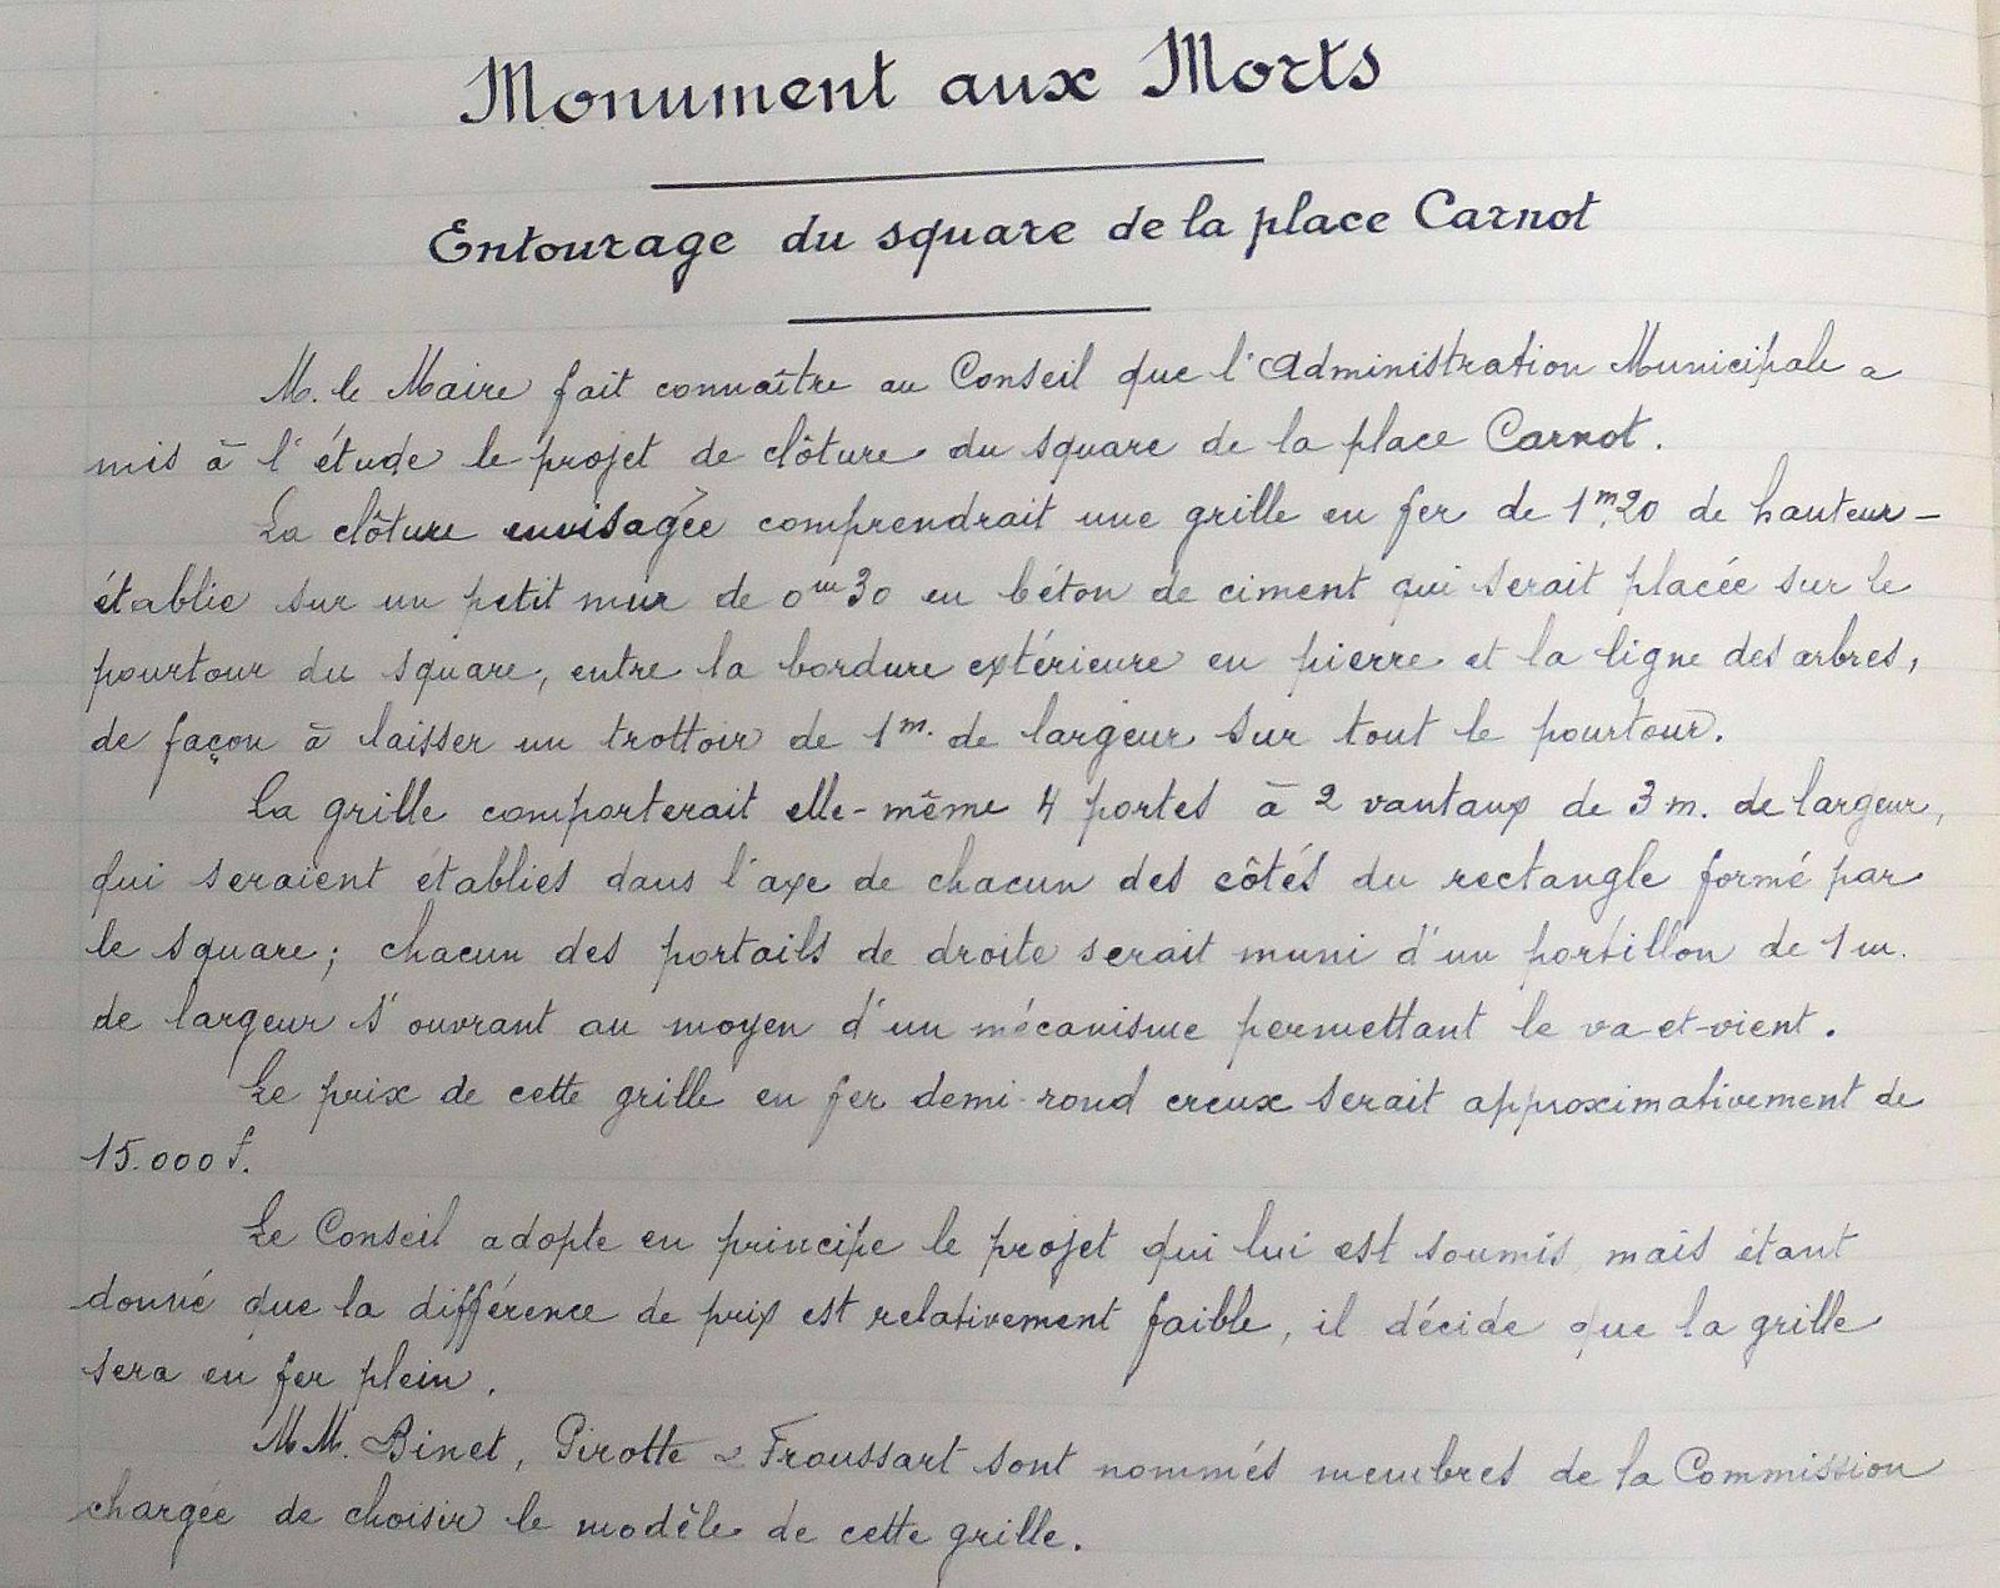 Monument aux Morts
Entourage du square de la place Carnot
M. le Maire fait connaître au Conseil que l'Administration Municipale a
mis à l'étude le projet de clôture du square de la place Carnot.
La clôture envisagée comprendrait une grille en fer de 1m,20 de hauteur -
établie sur un petit mur de 0m30 en béton de ciment qui serait placée sur le
pourtour du square, entre la bordure extérieure en pierre et la ligne des arbres,
de façon à laisser un trottoir de 1m. de largeur sur tout le pourtour.
La grille comporterait elle-même 4 portes à 2 vantaux de 3 m. de largeur,
qui seraient établies dans l'axe de chacun des côtés du rectangle formé par
le square; chacun des portails de droite serait muni d'un portillon de 1 m.
de largeur s'ouvrant au moyen d'un mécanisme permettant le va-et-vient.
Le prix de cette grille en fer demi-rond creux serait approximativement de
15.000 f.
Le Conseil adopte en principe le projet qui lui est soumis, mais étant
donné que la différence de prix est relativement faible, il décide que la grille
sera en fer plein.
MM. Binet, Pirotte & Froussart sont nommés membres de la Commission
chargée de choisir le modèle de cette grille.